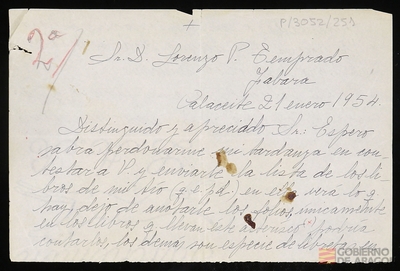 P/3052/251
+
2º
Sr. D. Lorenzo P. Temprado
Fabara
Calaceite 21 enero 1954
Distinguido y apreciado Sr: Espero
sabrá perdonarme mi tardanza en con
testar a V. y enviarle la lista de los li
bros de mi tío (q.e.p.d.) en ella verá lo q.
hay, dejo de anotarle los folios, únicamente
en los libros q. llevan este asterisco (*) podría
contarlos, los demás son especie de libreta
GOBIERNO
DE ARAGON